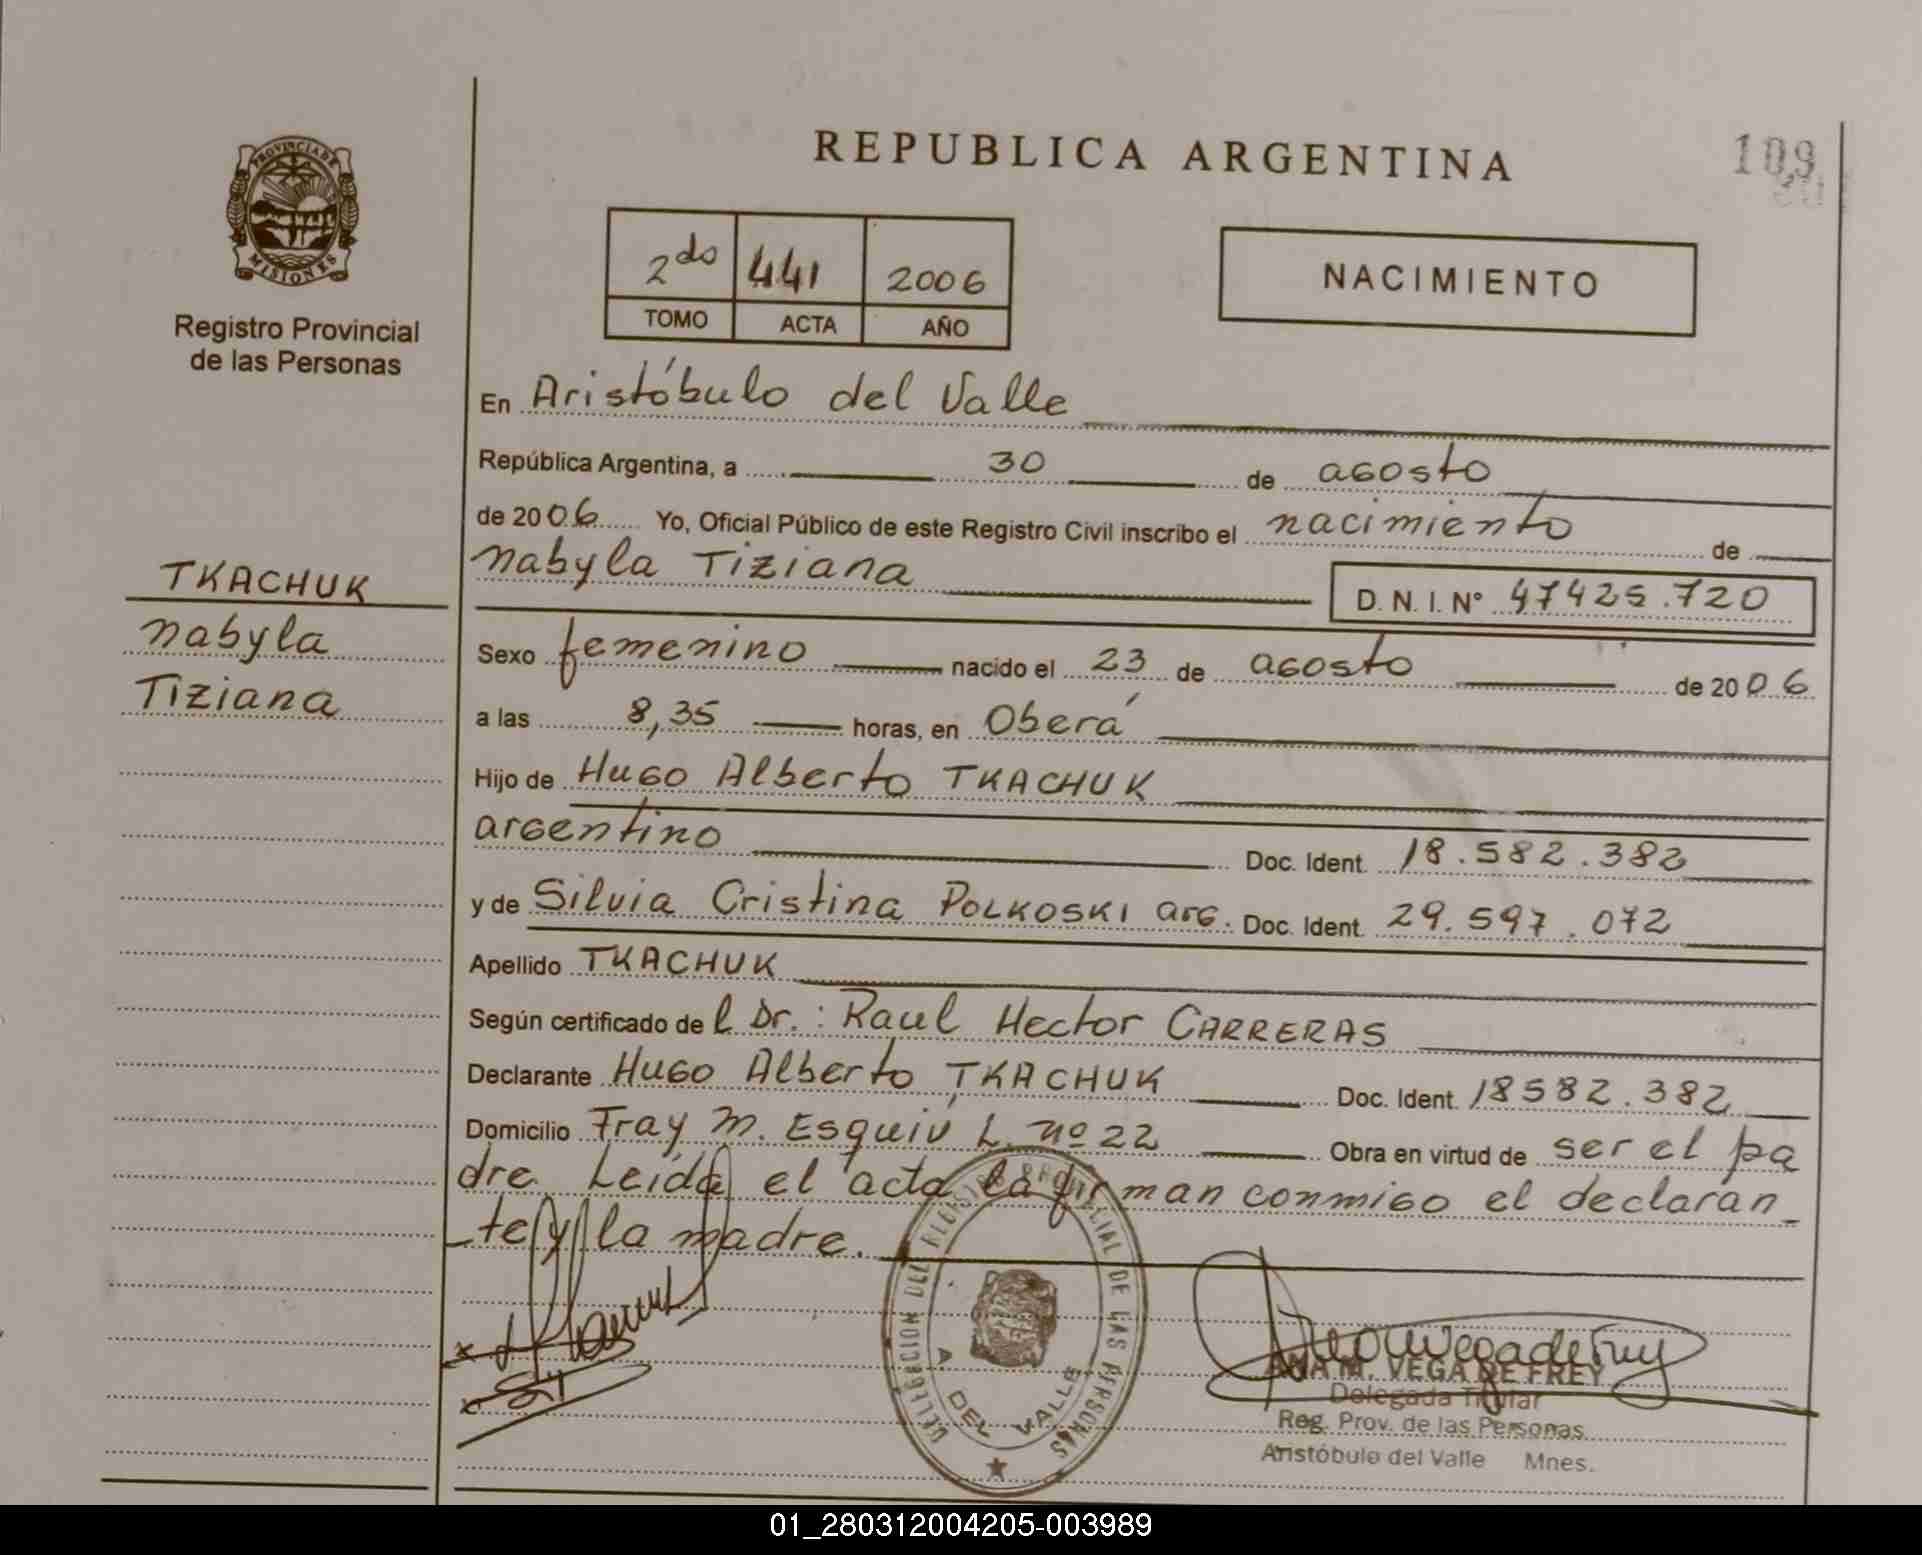 REPUBLICA ARGENTINA
109
PROVINCIA DE
MISIONES
Registro Provincial
de las Personas
2do 441 2006
TOMO ACTA AÑO
NACIMIENTO
En Aristóbulo del Valle
República Argentina, a 30 de agosto
de 2006 Yo, Oficial Público de este Registro Civil inscribo el nacimiento de
Nabyla Tiziana D. N. I. N° 47425.720
TKACHUK
Nabyla
Tiziana
Sexo femenino nacido el 23 de agosto de 2006
a las 8,35 horas, en Oberá
Hijo de Hugo Alberto TKACHUK
argentino Doc. Ident. 18.582.382
y de Silvia Cristina POLKOSKI arg. Doc. Ident. 29.597.072
Apellido TKACHUK
Según certificado de l Dr.: Raul Hector CARRERAS
Declarante Hugo Alberto TKACHUK Doc. Ident. 18582.382
Domicilio Fray M. Esquiú L. nº 22 Obra en virtud de ser el pa
dre. Leída el acta la firman conmigo el declaran_
_te y la madre.
DELEGACION DEL REGISTRO PROVINCIAL DE LAS PERSONAS
A. DEL VALLE
ANA M. VEGA DE FREY
Delegada Titular
Reg. Prov. de las Personas
Aristóbulo del Valle Mnes.
01_280312004205-003989